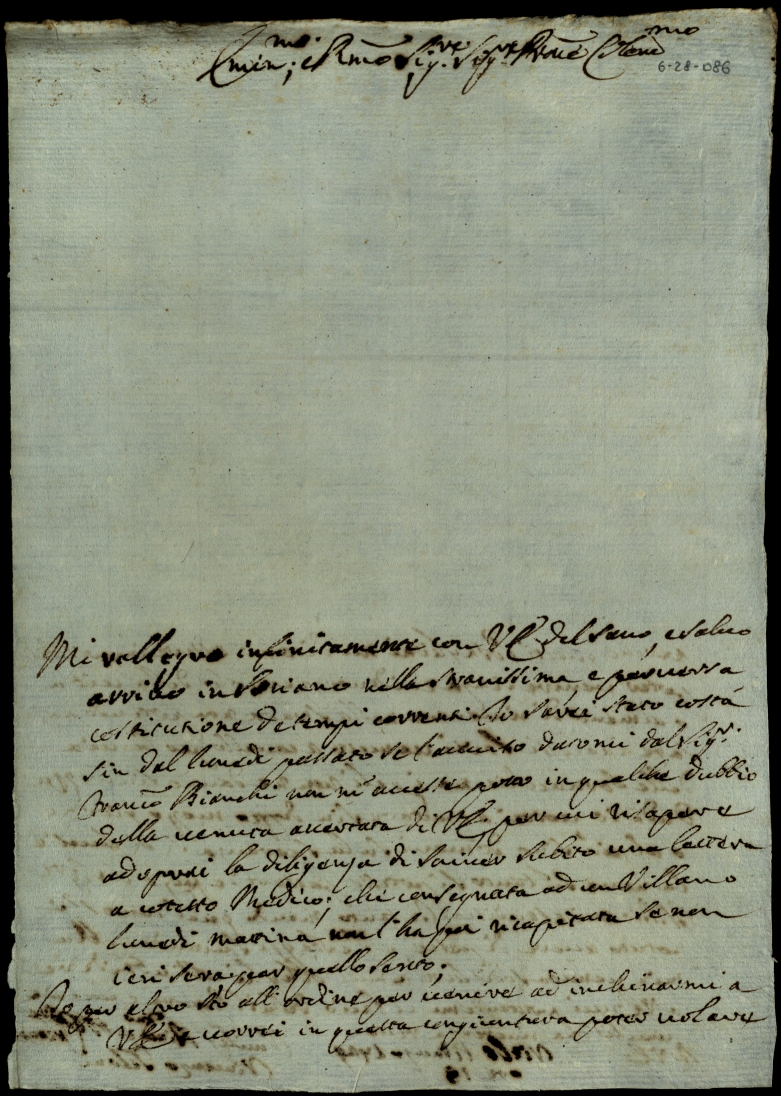 Emin.mo; e Rmo Sig.re Sig.re Prone Colenmo
6-28-086
Mi rallegro infinitamente con VE del sano, e salvo
arrivo in Soriano nella stranissima, e perversa
costitutione de tempi correnti. Io sarei stato costà
sin dal lunedì passato se l'avviso datomi dal Sigr.
Franco Bianchi non m'avesse posto in qualche dubbio
della venuta accertata di VE, per cui risapere
adoprai la diligenza di scriver subito una lettera
a cotesto Medico; che consegnata ad un Villano
lunedì mattina non l'ha poi ricapitata se non
ieri sera per quello sento;
Io per altro stò all'ordine per venire ad inchinarmi a
VE, e vorrei in questa congiuntura poter volare